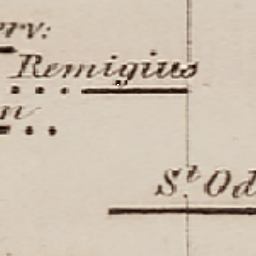 erv:
Remigius
n
S.t Od